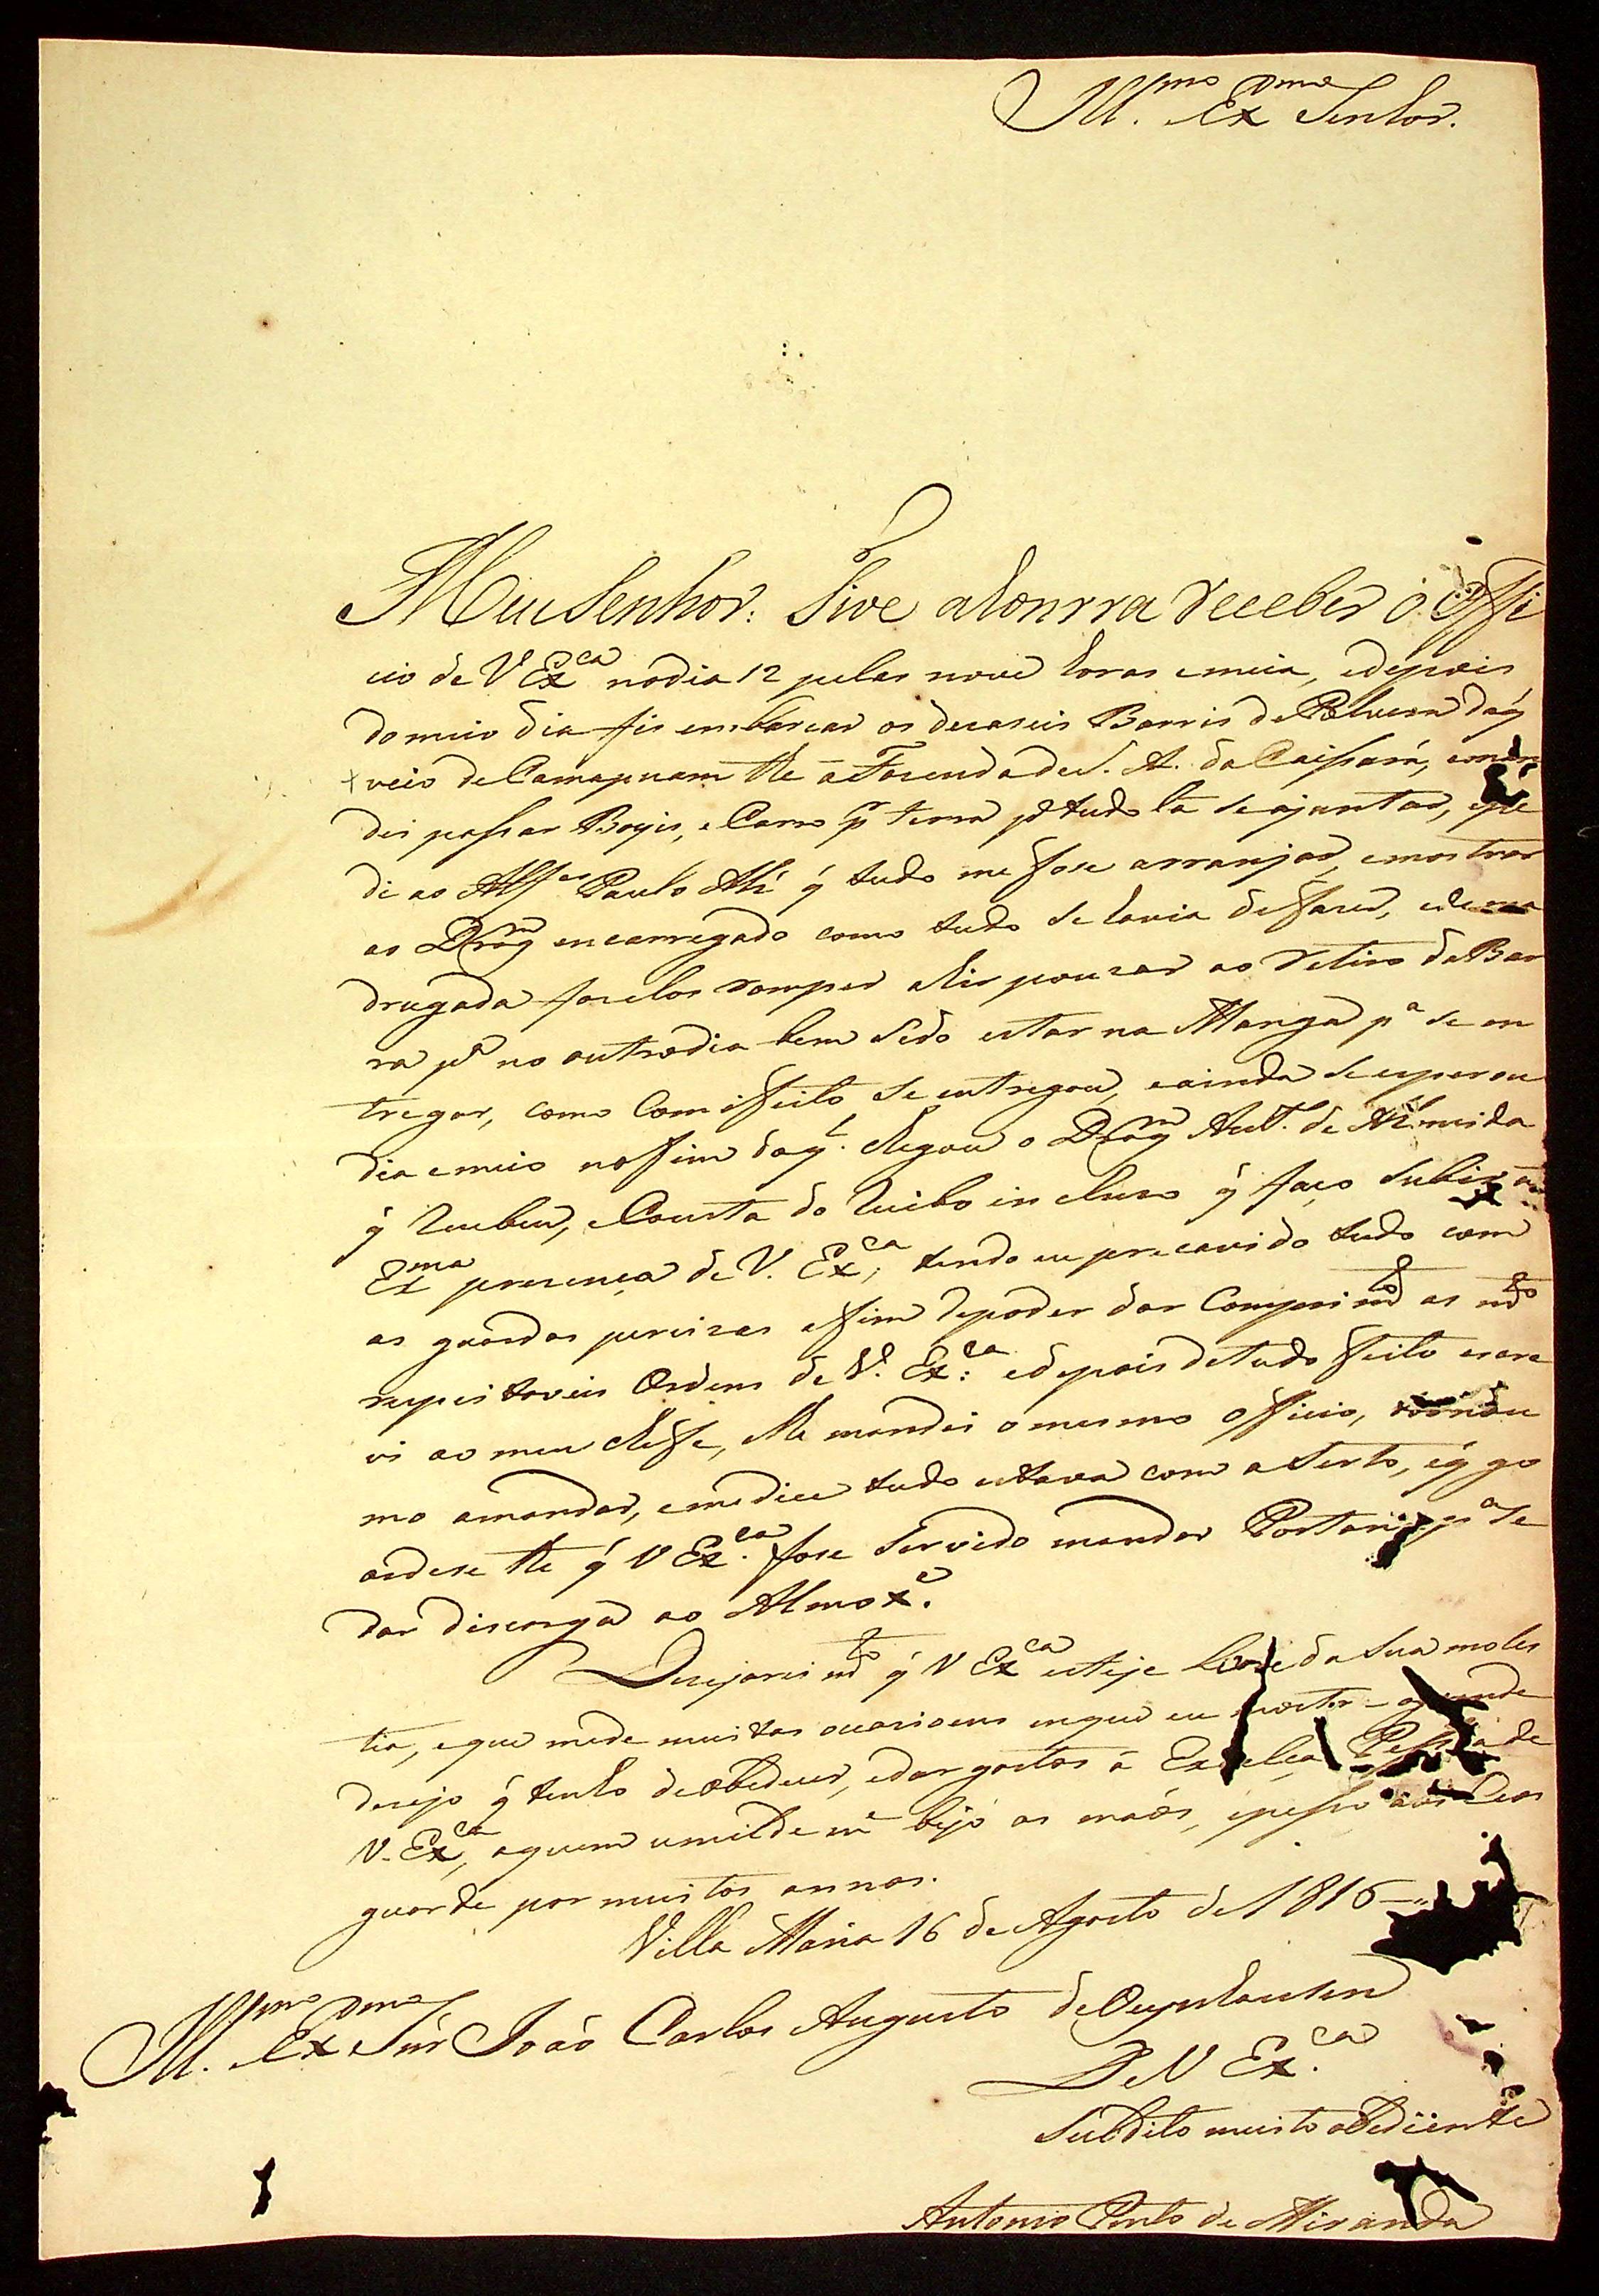 Ill.mo Ex.mo Senhor.
Meu Senhor: Tive ahonrra receber o Offi
cio de V Ex.ca nodia 12 pelas nove horas emeia, edepois
domeio dia fis embarcar os decaseis Barris de Polvora daq̃
veio de Camapuam the aFazenda de S. A. da Caissara,
dei passar Boyis, eCarro p.r terra p.a tudo la seajuntar, epe
di ao Alf.es Paulo q̃ tudo me fose arranjar, emostrar
ao Drag.m encarregado como tudo se havia defazer, edema
drugada fazelos romper ahir pouzar ao retiro daBar
ra p.a no outrodia bem sedo estar na Manga p.a se en
tregar, como Com effeito se entregou, eainda seesperou
dia emeio nofim doq.l chegou o Drag.m Ant.o de Almeida
q̃ recebeu, eConsta do recibo incluzo q̃ faço subir a
Ex.ma prezença de V. Ex.ca, tendo eu precavido tudo com
as guardas percizas afim depoder dar Comprim.to as m.to
respeitaveis Ordens de V. Ex.ca: edepois detudo feito escre
vi ao meu cheffe, lhe mandei omesmo officio, tornou
mo amandar, emedice tudo estava com aserto, eq̃ go
ardese the q̃ V Ex.ca fose servido mandar Portaria p.a se
dar discarga ao Almox.e
Dezejarei m.to q̃ V Ex.ca esteje livre da sua moles
tia, eque mede muitas ocazioens enque eu mostre ogrande
dezejo q̃ tenho deobedecer, edar gostos á Excelça Pessoa de
V. Ex.ca, aquem umildem.e bejo as maõs, epesso aos Ceos
guarde por muitos annos.
Villa Maria 16 de Agosto de 1816
Ill.mo Ex.mo Snr João Carlos Augusto deOeynhausen
De V Ex.ca
Subdito muito obediente
Antonio Pinto de Miranda